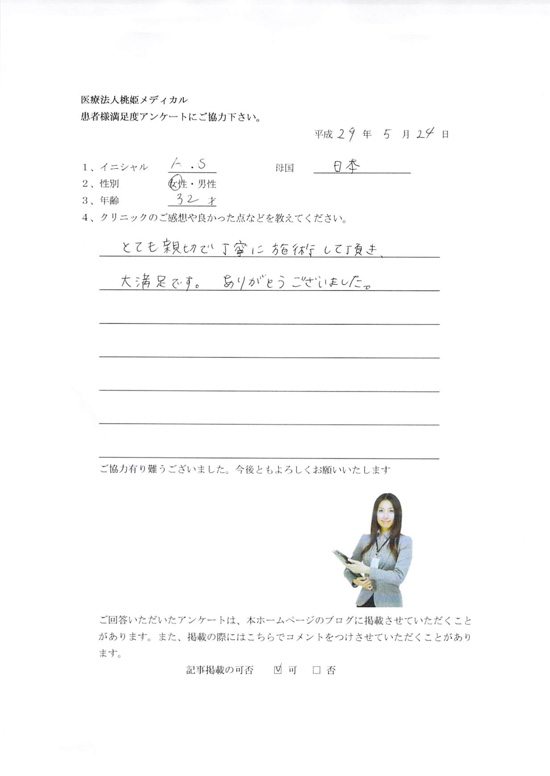 医療法人桃姫メディカル
患者様満足度アンケートにご協力下さい。
平成 29 年 5 月 24 日
1、イニシャル A.S 母国 日本
2、性別 女性・男性
3、年齢 32才
4、クリニックのご感想や良かった点などを教えてください。
とても親切で丁寧に施術して頂き、
大満足です。 ありがとうございました。
ご協力有り難うございました。今後ともよろしくお願いいたします
ご回答いただいたアンケートは、本ホームページのブログに掲載させていただくこと
があります。また、掲載の際にはこちらでコメントをつけさせていただくことがあり
ます。
記事掲載の可否 ☑ 可 □ 否